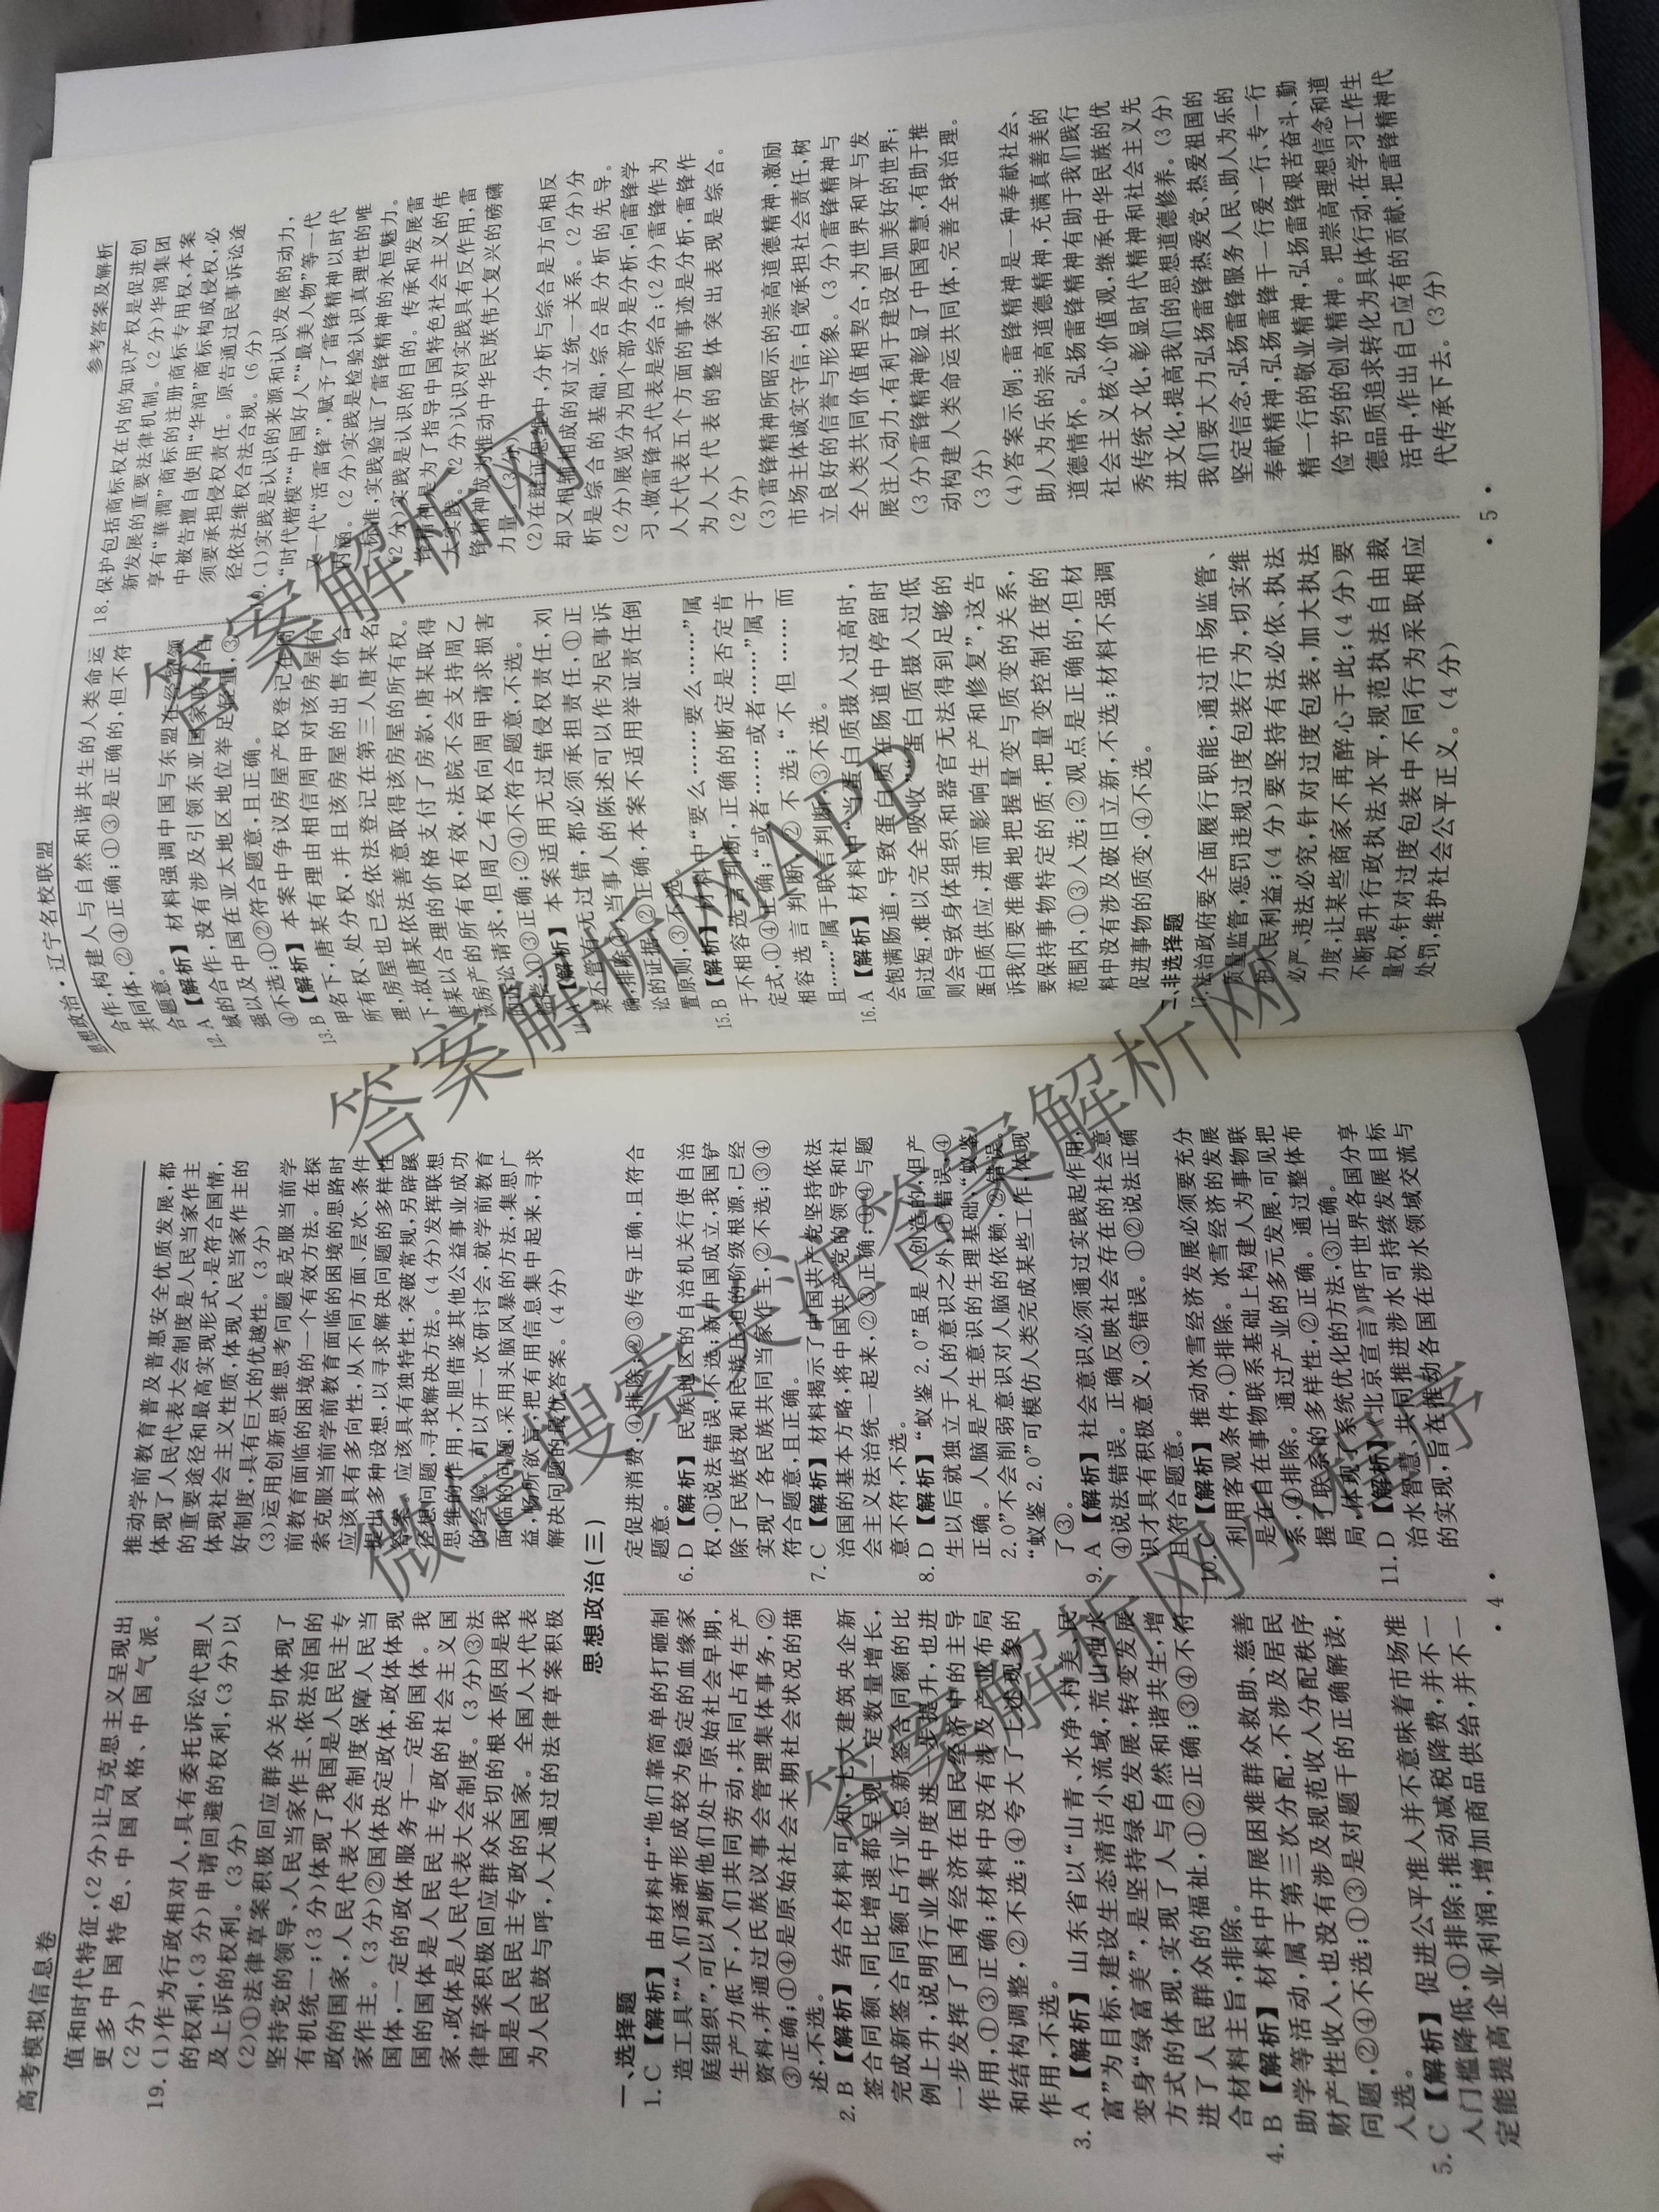 高考模拟信息卷
值和时代特征,(2分)让马克思主义呈现出
更多中国特色、中国风格、中国气派。
(2分)
19.(1)作为行政相对人,具有委托诉讼代理人
的权利,(3分)申请回避的权利,(3分)以
及上诉的权利。(3分)
(2)①法律草案积极回应群众关切体现了
坚持党的领导、人民当家作主、依法治国的
有机统一;(3分)体现了我国是人民民主专
政的国家,人民代表大会制度保障人民当
家作主。(3分)②国体决定政体,政体体现
国体,一定的政体服务于一定的国体。我
国的国体是人民民主专政的社会主义国
家,政体是人民代表大会制度。(3分)③法
律草案积极回应群众关切的根本原因是我
国是人民民主专政的国家。全国人大代表
为人民鼓与呼,人大通过的法律草案积极
推动学前教育普及普惠安全优质发展,都
体现了人民代表大会制度是人民当家作主
的重要途径和最高实现形式,是符合国情,
体现社会主义性质,体现人民当家作主的
好制度,具有巨大的优越性。(3分)
(3)运用创新思维思考问题是克服当前学
前教育面临的困境的一个有效方法。在探
索克服当前学前教育面临的困境的思路时
应该具有多向性,从不同方面、层次、条件
提出多种设想,以寻求解决问题的多样性
答案。应该具有独特性,突破常规,另辟蹊
径想问题,寻找解决方法。(4分)发挥联想
思维的作用,大胆借鉴其他公益事业成功
的经验。可以开一次研讨会,就学前教育
面临的问题,采用头脑风暴的方法,集思广
益,畅所欲言,把有用信息集中起来,寻求
解决问题的最优答案。(4分)
思想政治(三)
一、选择题
1.C【解析】由材料中“他们靠简单的打砸制
造工具”“人们逐渐形成较为稳定的血缘家
庭组织”,可以判断他们处于原始社会早期,
生产力低下,人们共同劳动,共同占有生产
资料,并通过氏族议事会管理集体事务,②
③正确;①④是原始社会末期社会状况的描
述,不选。
2.B【解析】结合材料可知,七大建筑央企新
签合同额、同比增速都呈现一定数量增长,
完成新签合同额占行业总新签合同额的比
例上升,说明行业集中度进一步提升,也进
一步发挥了国有经济在国民经济中的主导
作用,①③正确;材料中没有涉及产业布局
和结构调整,②不选;④夸大了上述现象的
作用,不选。
3.A【解析】山东省以“山青、水净、村美、民
富”为目标,建设生态清洁小流域,荒山浊水
变身“绿富美”,是坚持绿色发展,转变发展
方式的体现,实现了人与自然和谐共生,增
进了人民群众的福祉,①②正确;③④不符
合材料主旨,排除。
4.B【解析】材料中开展困难群众救助、慈善
助学等活动,属于第三次分配,不涉及居民
财产性收入,也没有涉及规范收入分配秩序
问题,②④不选;①③是对题干的正确解读,
入选。
5.C【解析】促进公平准入并不意味着市场准
入门槛降低,①排除;推动减税降费,并不一
定能提高企业利润,增加商品供给,并不一
定促进消费,④排除;②③传导正确,且符合
题意。
6.D【解析】民族地区的自治机关行使自治
权,①说法错误,不选;新中国成立,我国铲
除了民族歧视和民族压迫的阶级根源,已经
实现了各民族共同当家作主,②不选;③④
符合题意,且正确。
7.C【解析】材料揭示了中国共产党坚持依法
治国的基本方略,将中国共产党的领导和社
会主义法治统一起来,②③正确;①④与题
意不符,不选。
8.D【解析】“蚁鉴2.0”虽是人创造的,但产
生以后就独立于人的意识之外,①错误,④
正确。人脑是产生意识的生理基础,“蚁鉴
2.0”不会削弱意识对人脑的依赖,②错误。
“蚁鉴2.0”可模仿人类完成某些工作,体现
了③。
9.A【解析】社会意识必须通过实践起作用,
④说法错误。正确反映社会存在的社会意
识才具有积极意义,③错误。①②说法正确
且符合题意。
10.C【解析】推动冰雪经济发展必须要充分
利用客观条件,①排除。冰雪经济的发展
是在自在事物联系基础上构建人为事物联
系,④排除。通过产业的多元发展,可见把
握了联系的多样性,②正确。通过整体布
局,体现了系统优化的方法,③正确。
11.D【解析】《北京宣言》呼吁世界各国分享
治水智慧,共同推进涉水可持续发展目标
的实现,旨在推动各国在涉水领域交流与
·4·
思想政治·辽宁名校联盟
参考答案及解析
合作,构建人与自然和谐共生的人类命运
共同体,②④正确;①③是正确的,但不符
合题意。
12.A【解析】材料强调中国与东盟在经贸领
域的合作,没有涉及引领东亚国家联合自
强以及中国在亚太地区地位举足轻重,③
④不选;①②符合题意,且正确。
13.B【解析】本案中争议房屋产权登记在周
甲名下,唐某有理由相信周甲对该房屋有
所有权、处分权,并且该房屋的出售价合
理,房屋也已经依法登记在第三人唐某名
下,故唐某依法善意取得该房屋的所有权。
唐某以合理的价格支付了房款,唐某取得
该房产的所有权有效,法院不会支持周乙
的诉讼请求,但周乙有权向周甲请求损害
赔偿,①③正确;②④不符合题意,不选。
【解析】本案适用无过错侵权责任,刘
某不管有无过错,都必须承担责任,①正
确,排除④;当事人的陈述可以作为民事诉
讼的证据,②正确,本案不适用举证责任倒
置原则,③不选。
15.B【解析】材料中“要么……要么……”属
于不相容选言判断,正确的断定是否定肯
定式,①④正确;“或者……或者……”属于
相容选言判断,②不选;“不但……而
且……”属于联言判断,③不选。
16.A【解析】材料中“当蛋白质摄入过高时,
会饱满肠道,导致蛋白质在肠道中停留时
间过短,难以完全吸收”“蛋白质摄入过低
则会导致身体组织和器官无法得到足够的
蛋白质供应,进而影响生产和修复”,这告
诉我们要准确地把握量变与质变的关系,
要保持事物特定的质,把量变控制在度的
范围内,①③入选;②观点是正确的,但材
料中没有涉及破旧立新,不选;材料不强调
促进事物的质变,④不选。
二、非选择题
17.法治政府要全面履行职能,通过市场监管、
质量监管,惩罚违规过度包装行为,切实维
护人民利益;(4分)要坚持有法必依、执法
必严、违法必究,针对过度包装,加大执法
力度,让某些商家不再醉心于此;(4分)要
不断提升行政执法水平,规范执法自由裁
量权,针对过度包装中不同行为采取相应
处罚,维护社会公平正义。(4分)
18.保护包括商标权在内的知识产权是促进创
新发展的重要法律机制。(2分)华润集团
享有“華潤”商标的注册商标专用权,本案
中被告擅自使用“华润”商标构成侵权,必
须要承担侵权责任。原告通过民事诉讼途
径依法维权合法合规。(6分)
19.(1)实践是认识的来源和认识发展的动力,
“时代楷模”“中国好人”“最美人物”等一代
又一代“活雷锋”,赋予了雷锋精神以时代
内涵。(2分)实践是检验认识真理性的唯
一标准,实践验证了雷锋精神的永恒魅力。
(2分)实践是认识的目的。传承和发展雷
锋精神是为了指导中国特色社会主义的伟
大实践。(2分)认识对实践具有反作用,雷
锋精神成为推动中华民族伟大复兴的磅礴
力量。(3分)
(2)在辩证思维中,分析与综合是方向相反
却又相辅相成的对立统一关系。(2分)分
析是综合的基础,综合是分析的先导。
(2分)展览分为四个部分是分析,向雷锋学
习,做雷锋式代表是综合;(2分)雷锋作为
人大代表五个方面的事迹是分析,雷锋作
为人大代表的整体突出表现是综合。
(2分)
(3)雷锋精神所昭示的崇高道德精神,激励
市场主体诚实守信,自觉承担社会责任,树
立良好的信誉与形象。(3分)雷锋精神与
全人类共同价值相契合,为世界和平与发
展注入动力,有利于建设更加美好的世界;
(3分)雷锋精神彰显了中国智慧,有助于推
动构建人类命运共同体,完善全球治理。
(3分)
(4)答案示例:雷锋精神是一种奉献社会、
助人为乐的崇高道德精神,充满真善美的
道德情怀。弘扬雷锋精神有助于我们践行
社会主义核心价值观,继承中华民族的优
秀传统文化,彰显时代精神和社会主义先
进文化,提高我们的思想道德修养。(3分)
我们要大力弘扬雷锋热爱党、热爱祖国的
坚定信念,弘扬雷锋服务人民、助人为乐的
奉献精神,弘扬雷锋干一行爱一行、专一行
精一行的敬业精神,弘扬雷锋艰苦奋斗、勤
俭节约的创业精神。把崇高理想信念和道
德品质追求转化为具体行动,在学习工作生
活中,作出自己应有的贡献,把雷锋精神代
代传承下去。(3分)
·5·
答案解析网
答案解析网APP
微信搜索关注答案解析网
答案解析网